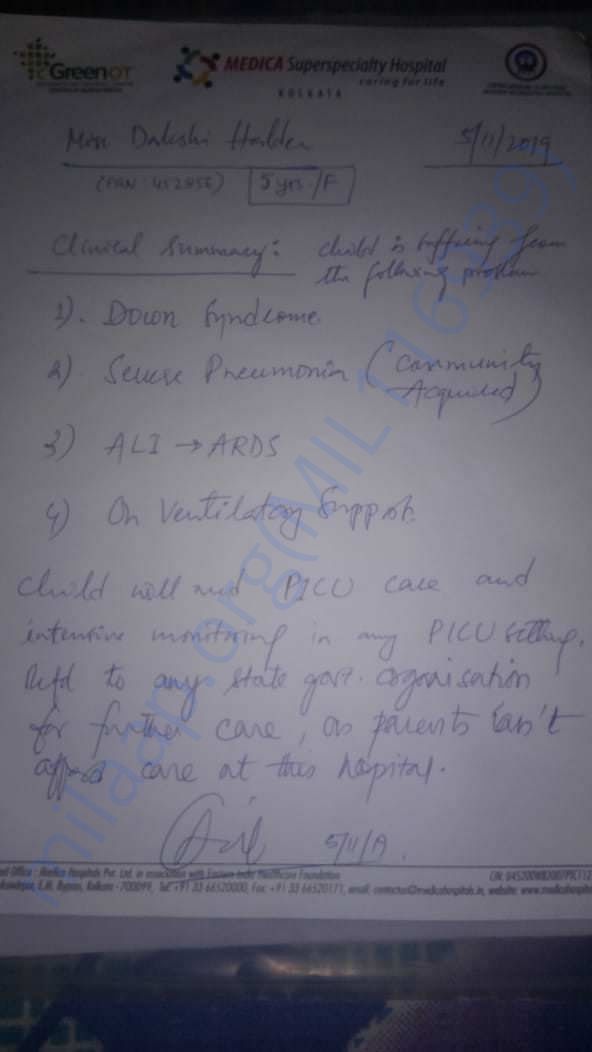 GreenOT
MEDICA Superspecialty Hospital
caring for life
KOLKATA
Miss Dakshi Halder
5/11/2019
5 yrs./F
Clinical Summary: child is suffering from
the following problem
1). Down Syndrome.
2) Severe Pneumonia (Community
Acquired)
3) ALI → ARDS
4) On Ventilatory Support.
Child will need PICU care and
intensive monitoring in any PICU setting.
Refd to any state govt. organisation
for further care, as parents can't
afford care at this hospital.
5/11/19.
milaap.org(MIL116939)
Office : Medica Hospitals Pvt. Ltd. in association with Eastern India Healthcare Foundation
E.M. Bypass, Kolkata - 700099, Tel: +91 33 66520000, Fax: +91 33 66520171, email: contactus@medicahospitals.in, website: www.medicahospital